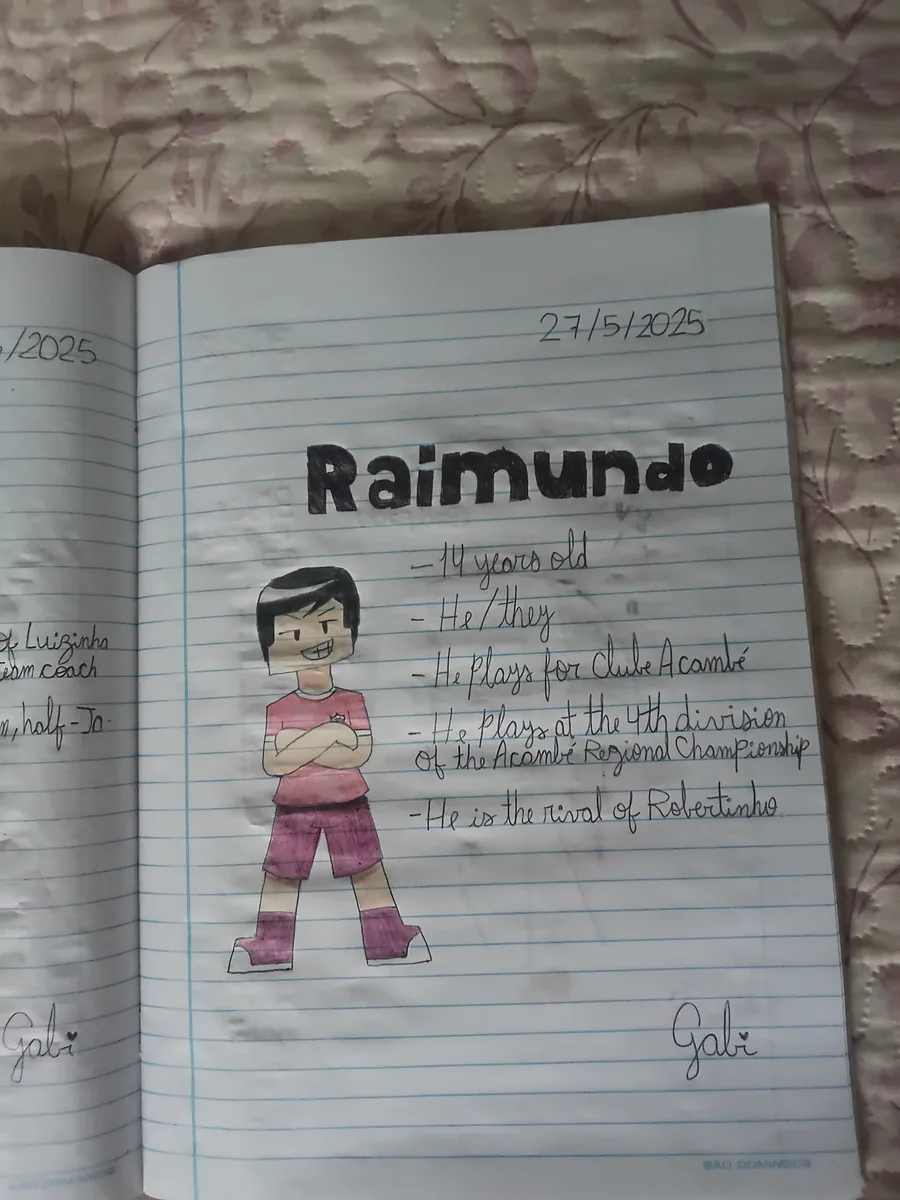 /2025
of Luizinho
team coach
n, half-Ja-
Gabi
27/5/2025
Raimundo
- 14 years old
- He/they
- He plays for Clube Acambé
- He plays at the 4th division
of the Acambé Regional Championship
- He is the rival of Robertinho.
Gabi
SÃO DOMINGOS